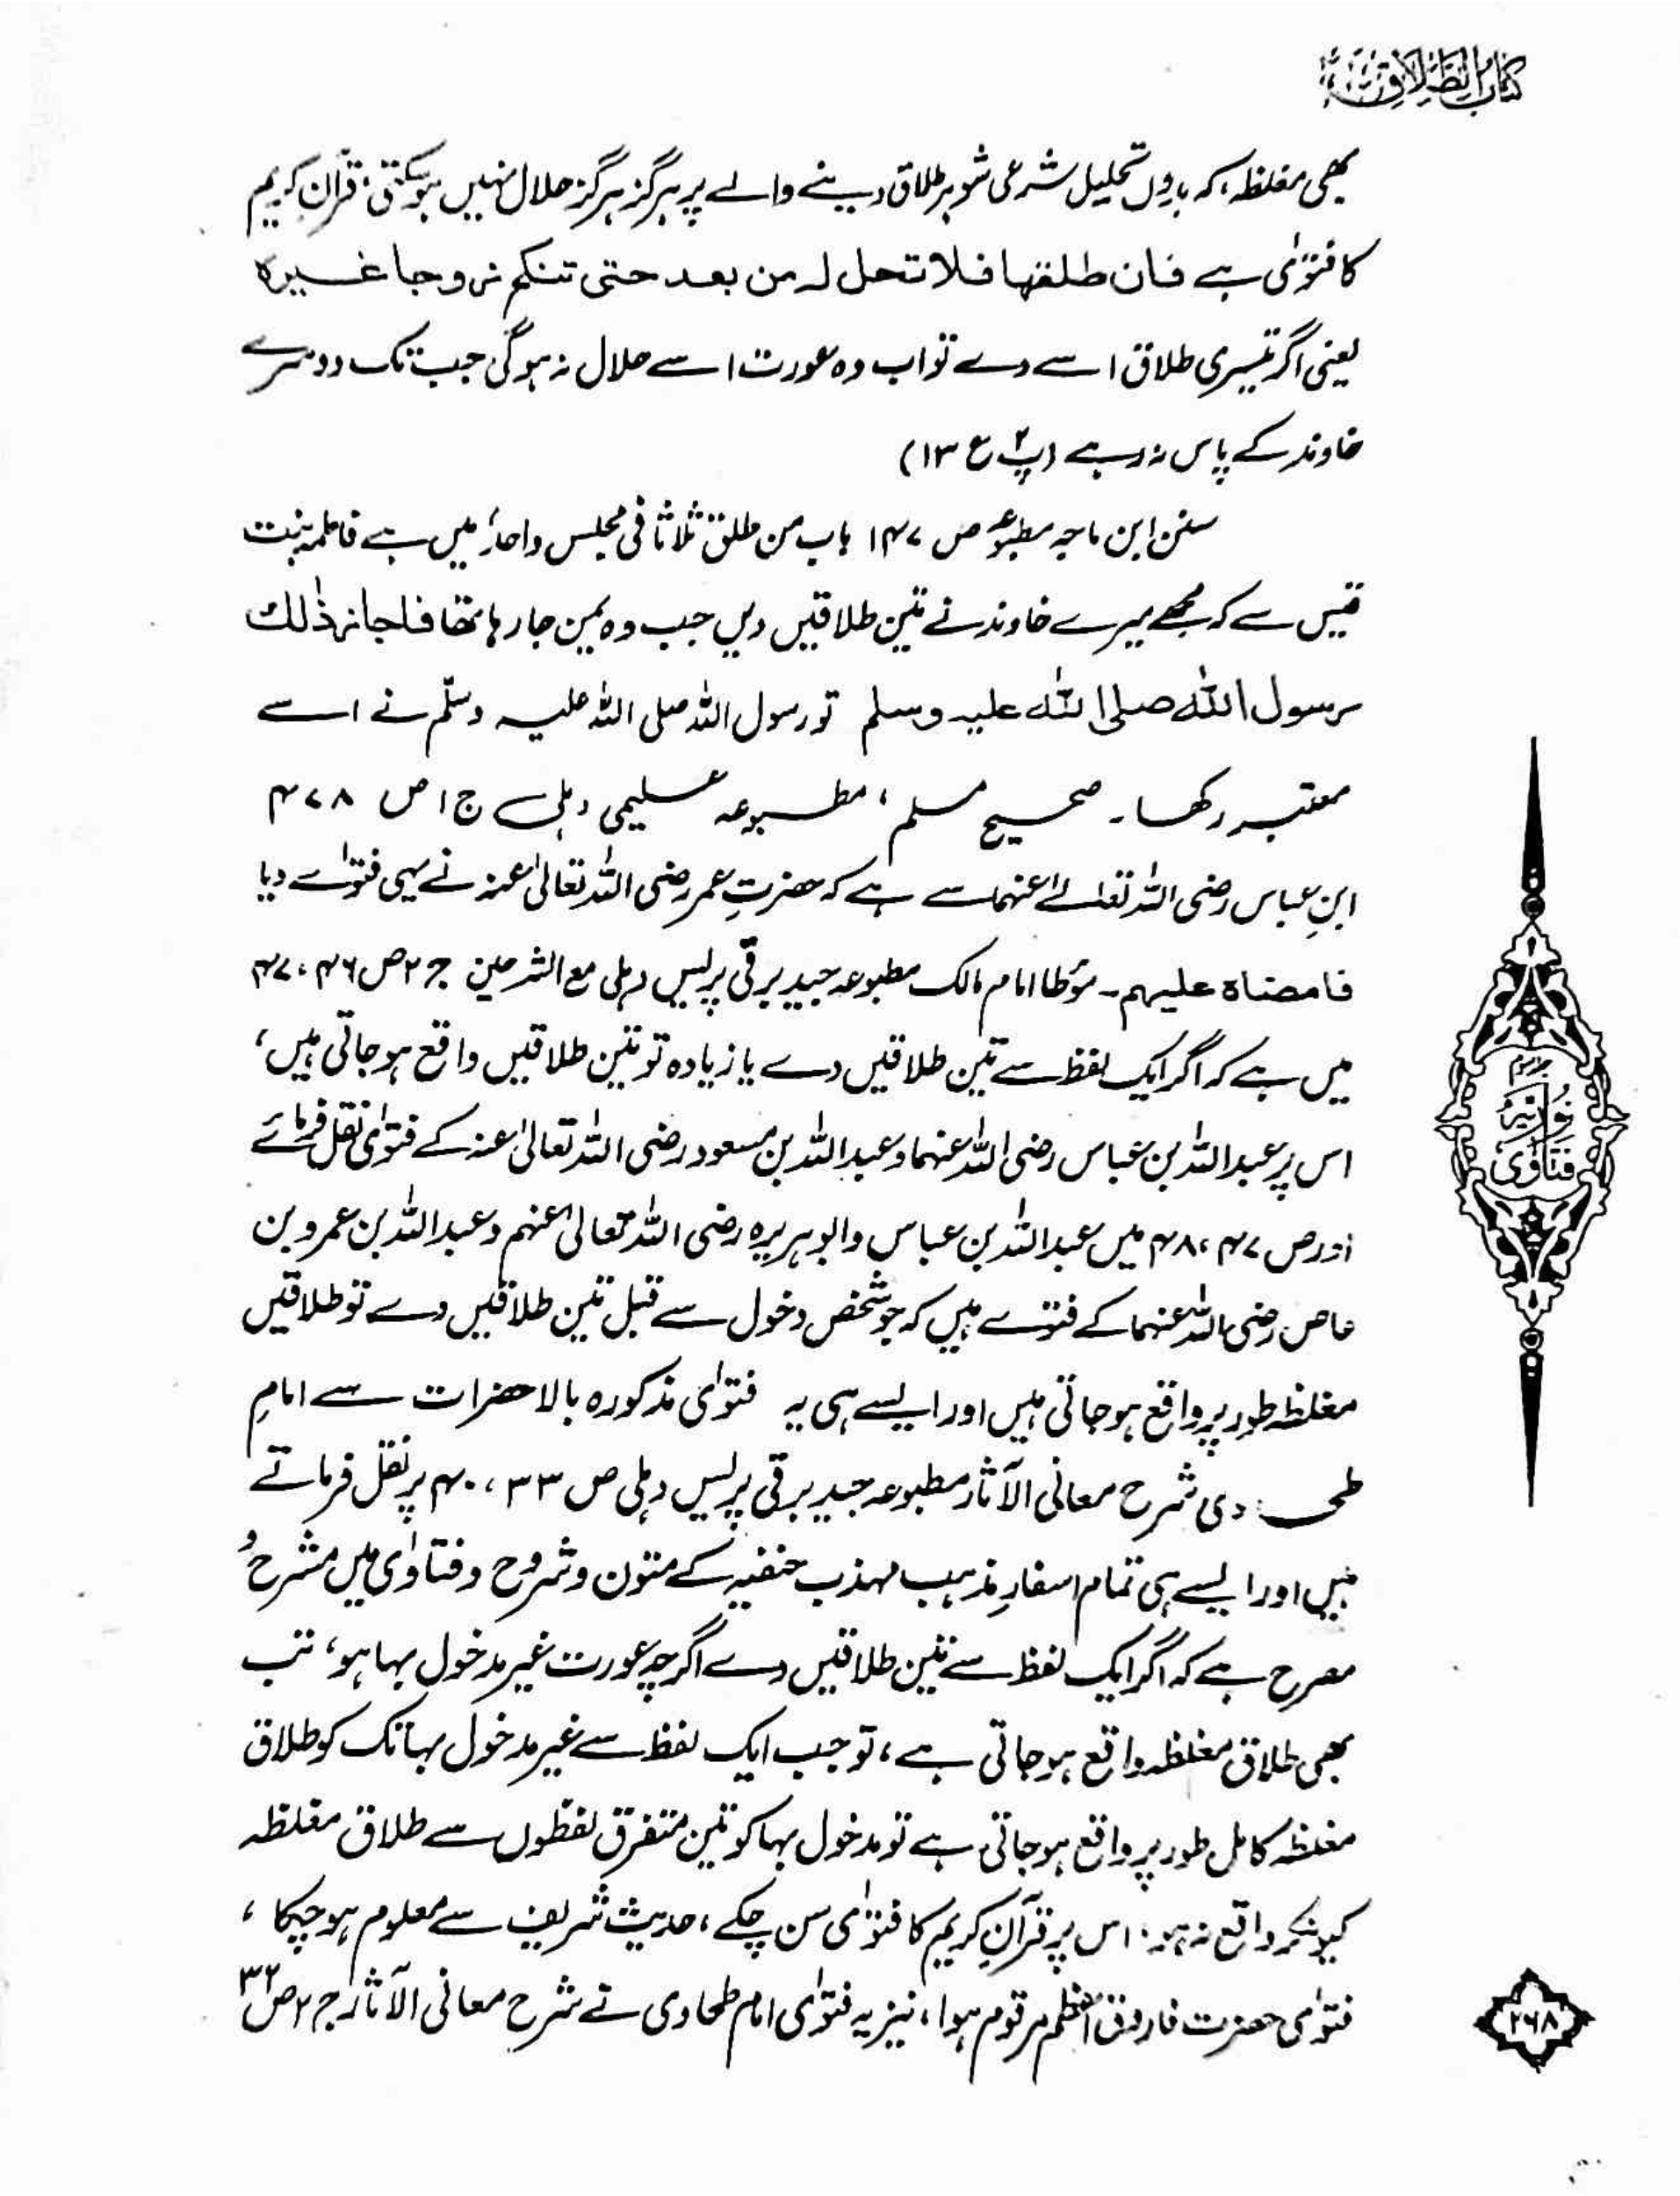 کتاب الطلاق
بھی مغلظہ، کہ بدوں تحلیل شرعی شوہر طلاق دینے والے پر ہرگز ہرگز حلال نہیں ہو سکتی، قرآن کریم
کا فتوٰی ہے فان طلقہا فلا تحل لہ من بعد حتی تنکح زوجا غیرہ
یعنی اگر تیسری طلاق اسے دے تو اب وہ عورت اسے حلال نہ ہوگی جب تک دوسرے
خاوند کے پاس نہ رہے (پ۲ ع ۱۳)
سنن ابن ماجہ مطبوعہ ص ۱۴۷ باب من طلق ثلاثا فی مجلس واحد میں ہے فاطمہ بنت
قیس سے کہ مجھے میرے خاوند نے تین طلاقیں دیں جب وہ یمن جا رہا تھا فاجاز ذٰلک
رسول اللہ صلی اللہ علیہ وسلم تو رسول اللہ صلی اللہ علیہ وسلّم نے اسے
معتبر رکھا۔ صحیح مسلم، مطبوعہ علیمی دہلی ج ۱ ص ۴۷۸
ابنِ عباس رضی اللہ تعالےٰ عنہما سے ہے کہ حضرتِ عمر رضی اللہ تعالیٰ عنہ نے یہی فتوٰے دیا
فامضاہ علیہم۔ مؤطا امام مالک مطبوعہ جید برقی پریس دہلی مع الشرحین ج ۲ ص ۴۶، ۴۷
میں ہے کہ اگر ایک لفظ سے تین طلاقیں دے یا زیادہ تو تین طلاقیں واقع ہو جاتی ہیں،
اس پر عبداللہ بن عباس رضی اللہ عنہما و عبداللہ بن مسعود رضی اللہ تعالیٰ عنہ کے فتوٰی نقل فرمائے
اور ص ۴۷، ۴۸ میں عبداللہ بن عباس و ابو ہریرہ رضی اللہ تعالیٰ عنہم و عبداللہ بن عمرو بن
عاص رضی اللہ عنہما کے فتوے ہیں کہ جو شخص دخول سے قبل تین طلاقیں دے تو طلاقیں
مغلظہ طور پر واقع ہو جاتی ہیں اور ایسے ہی یہ فتوٰی مذکورہ بالا حضرات سے امامِ
طحاوی شرح معانی الآثار مطبوعہ جید برقی پریس دہلی ص ۳۳، ۴۰ پر نقل فرماتے
ہیں اور ایسے ہی تمام اسفارِ مذہب مہذب حنفیہ کے متون و شروح و فتاوٰی میں مشرح و
مصرح ہے کہ اگر ایک لفظ سے تین طلاقیں دے اگرچہ عورت غیر مدخول بہا ہو، تب
بھی طلاق مغلظہ واقع ہو جاتی ہے، تو جب ایک لفظ سے غیر مدخول بہا تک کو طلاق
مغلظہ کامل طور پر واقع ہو جاتی ہے تو مدخول بہا کو تین متفرق لفظوں سے طلاق مغلظہ
کیونکر واقع نہ ہو، اس پر قرآنِ کریم کا فتوٰی سن چکے، حدیث شریف سے معلوم ہو چکا،
فتوٰی حضرت فاروق اعظم مرقوم ہوا، نیز یہ فتوٰی امام طحاوی نے شرح معانی الآثار ج ۲ ص ۳۲
نوریہ
فتاوٰی
۲۶۸